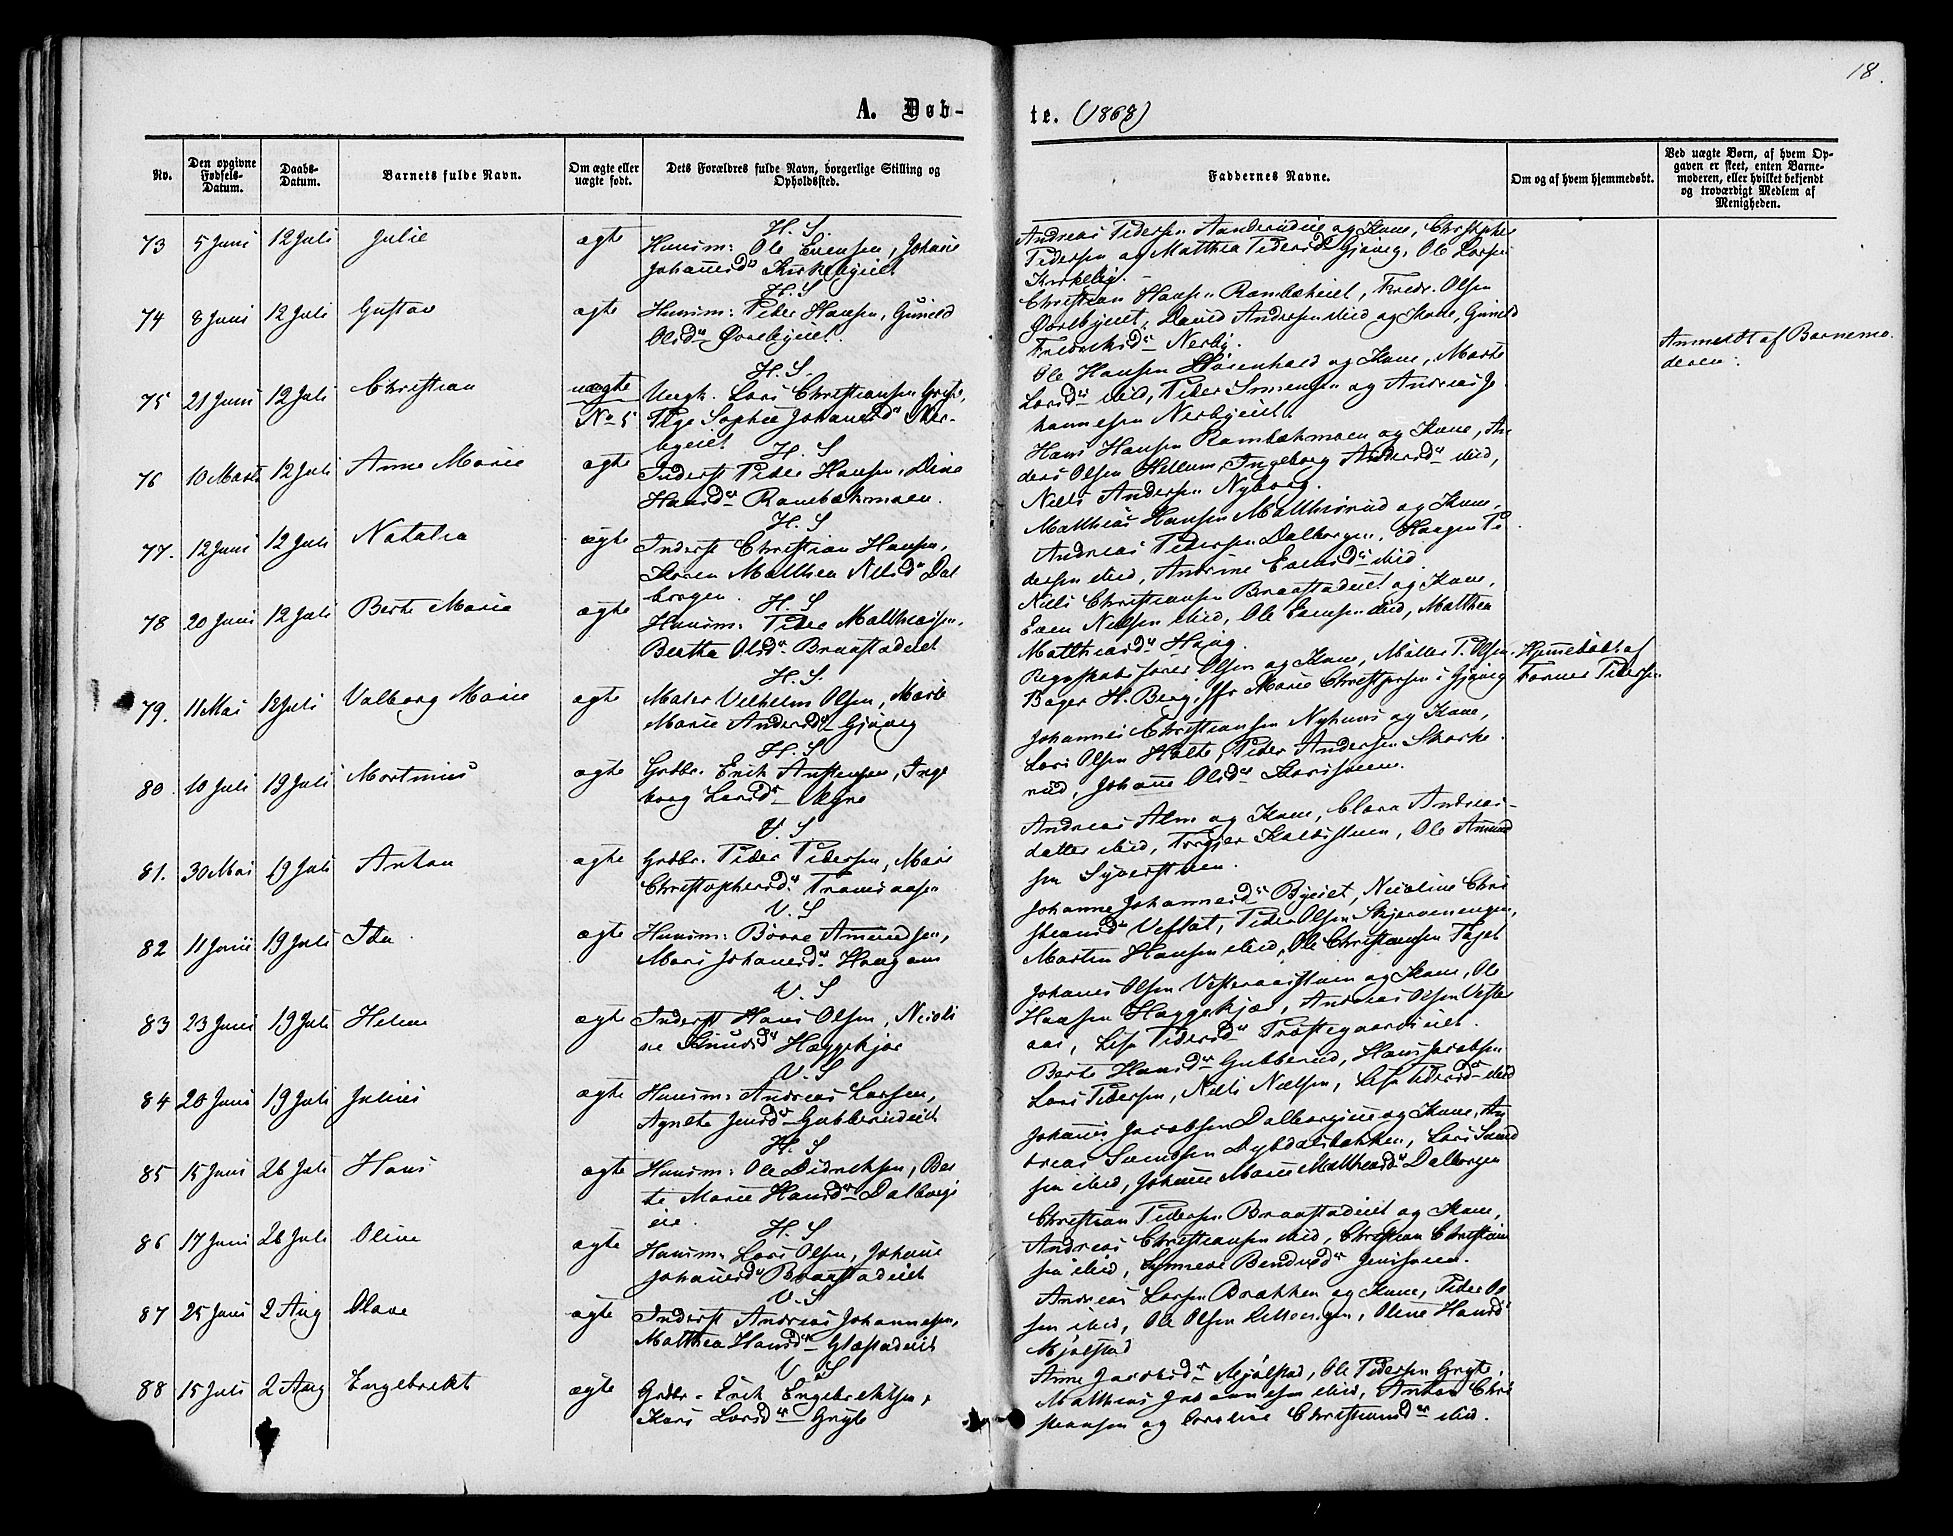 18.
A. Døb-
te. (1868)
No.
Den opgivne Fødsels-Datum.
Daabs-Datum.
Barnets fulde Navn.
Om ægte eller uægte født.
Dets Forældres fulde Navn, borgerlige Stilling og Opholdssted.
Faddernes Navne.
Om og af hvem hjemmedøbt.
Ved uægte Børn, af hvem Opgaven er skeet, enten Barnemoderen, eller hvilket bekjendt og troværdigt Medlem af Menigheden.
73 5 Juni 12 Juli Julie ægte
H. S.
Huusm: Ole Evensen, Johane
Johannesd Kirkebyeiet
Andreas Pedersen og Kone, Christopher
Pedersen og Matthea Pedersd Gjøvig, Ole Larsen
Kirkeby.
74 8 Juni 12 Juli Gustav ægte
H. S
Huusm: Peder Hansen, Gunild
Olsd Øverbyeiet.
Christian Hansen Rambækeiet, Fredr. Olsen
Øverbyeiet, David Andersen ibid og Kone, Gunild
Fredriksd Nerby.
75 21 Juni 12 Juli Christian uægte No 5
H. S.
Ungk. Lars Christiansen Gryte,
Pige Sophie Johannesd Ner-
byeiet
Ole Hansen og Kone, Marte
Larsd ibid, Peder Simensen og Andreas Jo
hannesen Nerbyeiet.
Anmeldt af Barnemo
deren.
76 10 Marts 12 Juli Anne Marie ægte
H. S
Inderst Peder Hansen, Dina
Hansd Rambækmoen.
Hans Hansen Rambækmoen og Kone, An
ders Olsen Hellum, Ingeborg Andersd ibid,
Niels Andersen Nyborg.
77. 12 Juni 12 Juli Natalia ægte
H. S
Inderst Christian Hansen,
Karen Mathea Nilsd Dal
borgen.
Matthias Hansen Matthisrud og Kone,
Andreas Pedersen Dalborgen, Haagen Pe
dersen ibid, Andrine Evensd ibid.
78 20 Juni 12 Juli Berte Marie ægte
H. S
Huusm: Peder Matthiasen,
Bertha Olsd Braastadeiet
Niels Christiansen Braastadeiet og Kone,
Even Nielsen ibid, Ole Evensen ibid, Matthea
Matthiasd Haug.
79. 11 Mai 12 Juli Valborg Marie ægte
H. S.
Maler Vilhelm Olsen, Marte
Marie Andersd Gjøvig
Regnskabsfører Olsen og Kone, Møller P. Olsen,
Bager H. Berg, Marie Christophersen i Gjøvig
Hjemmedøbt af
Farver Pedersen
80. 10 Juli 19 Juli Martinius ægte
H. S
Grdbr. Erik Anstensen, Inge
borg Larsd
Johannes Christiansen Nyhuus og Kone,
Lars Olsen Holte, Peder Andersen Skarke-
rud, Johanne Olsd
81. 30 Mai 19 Juli Anton ægte
V. S.
Grdbr. Peder Pedersen, Mari
Christophersd
Andreas Alm og Kone, Clara Andreas-
datter ibid, Ole Amund
sen Syverstuen.
82 11 Juni 19 Juli Ida. ægte
V. S
Huusm: Børre Amundsen,
Mari Johannesd
Johanne Johannesd Byeiet, Nicoline Chri
stiansd Veflat, Peder Olsen
Martin Hansen ibid, Ole Christiansen
83 23 Juni 19 Juli Helene ægte
V. S
Inderst Hans Olsen, Nicoli
ne Knudsd Hæggekjær
Johannes Olsen og Kone, Ole
Hansen Hæggekjær, Andreas Olsen Vester
aas, Lisa Pedersd Præstegaardseiet.
84 20 Juni 19 Juli Julius ægte
V. S
Huusm: Andreas Larsen,
Agnethe Jensd Gubberudeiet
Berte Hansd Gubberud, Hans Jacobsen
Lars Pedersen, Niels Nielsen, Lisa Pedersd ibid
85 15 Juni 26 Juli Hans ægte
H. S
Huusm: Ole Didriksen, Ber
te Marie Hansd Dalborge
eie.
Johannes Jacobsen og Kone, An
dreas Svendsen Dybdalsbakken, Lars Svend
sen ibid, Johanne Marie Matthiasd Dalborgen
86 17 Juni 26 Juli Oline ægte
H. S
Huusm: Lars Olsen, Johanne
Johannesd Braastadeiet
Christian Pedersen Braastadeiet og Kone,
Andreas Christiansen ibid, Christian Christian
sen ibid,
87 25 Juni 2 Aug Olave ægte
V. S
Inderst Andreas Johannesen,
Matthea Hansd Glæstadeiet
Andreas Larsen Brækken og Kone, Peder Ol
sen ibid, Ole Olsen Oline Hansd
Mjølstad
88 15 Juli 2 Aug Engebrekt ægte
V. S
Grdbr. Erik Engebrektsen,
Kari Larsd Gryte
Anne Jacobsd Mjølstad, Ole Pedersen Gryte,
Matthias Johannesen ibid, Anton Chri
stiansen og Caroline Christiansd ibid.